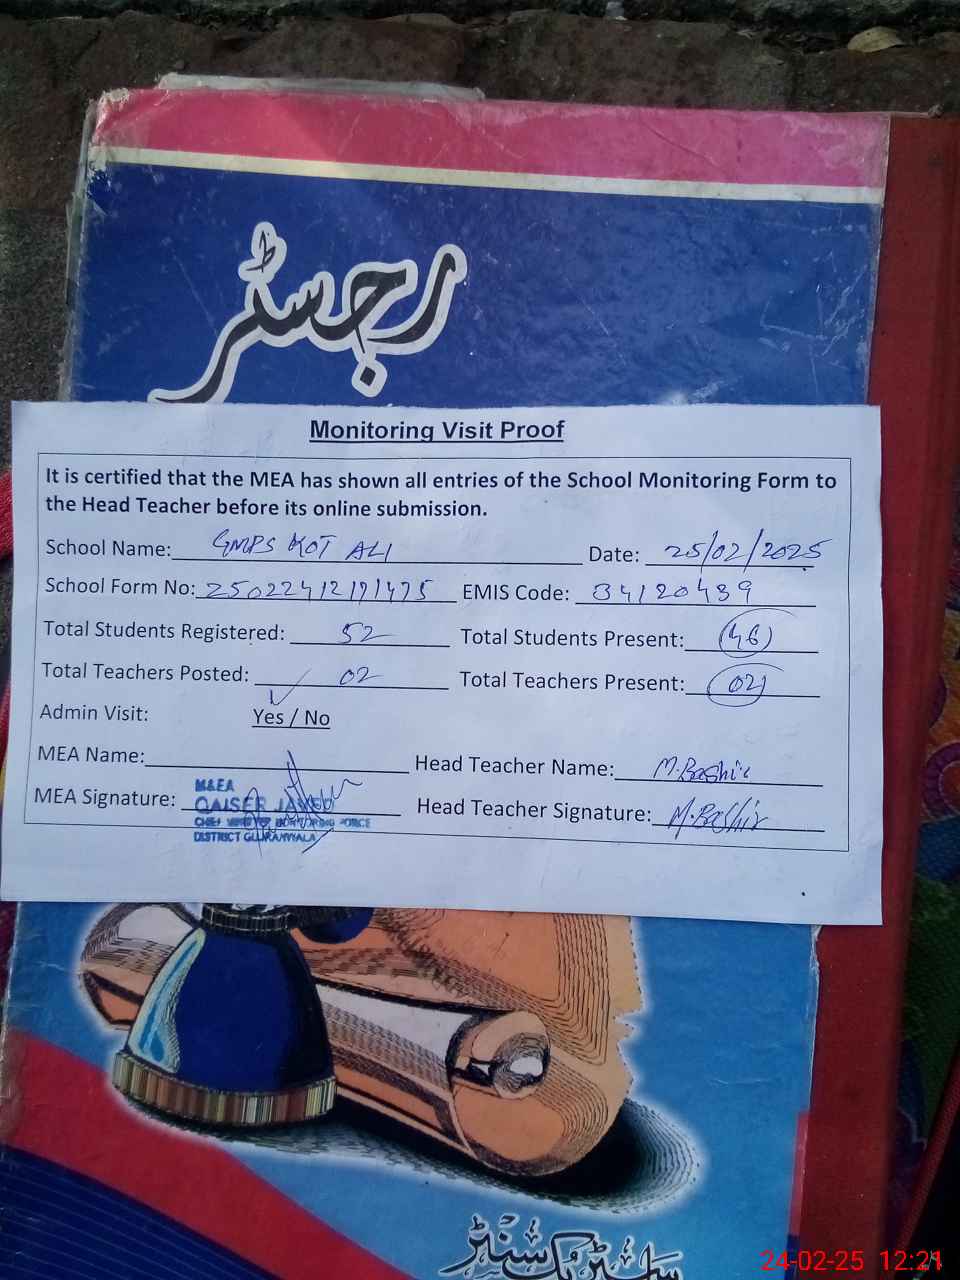 رجسٹر
Monitoring Visit Proof
It is certified that the MEA has shown all entries of the School Monitoring Form to
the Head Teacher before its online submission.
School Name: GMPS KOT ALI Date: 25/02/2025
School Form No: 25022412171475 EMIS Code: 34120439
Total Students Registered: 52 Total Students Present: 46
Total Teachers Posted: 02 Total Teachers Present: 02
Admin Visit: Yes / No
MEA Name: Head Teacher Name: M.Bashir
MEA Signature: Head Teacher Signature: M.Bashir
M&EA
QAISER JAVED
CHIEF MINISTER MONITORING FORCE
DISTRICT GUJRANWALA
24-02-25 12:21